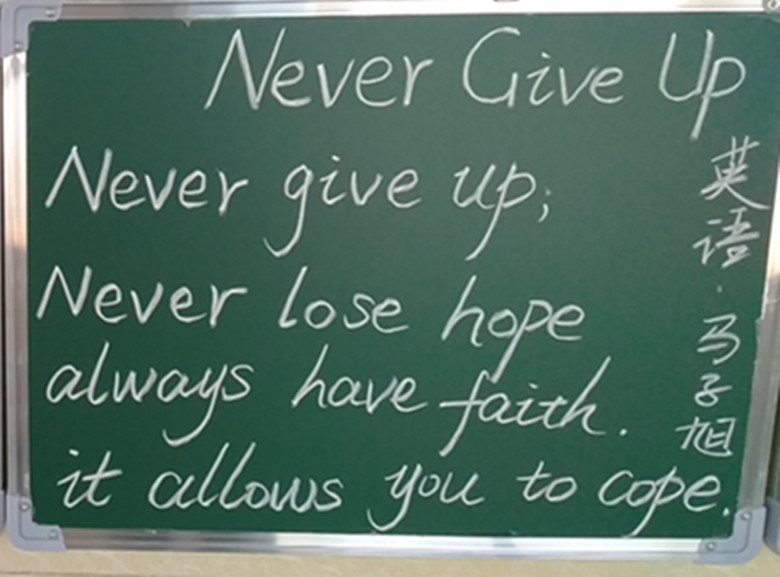 Never Give Up
Never give up;
Never lose hope
always have faith.
it allows you to cope.
英语·马子旭